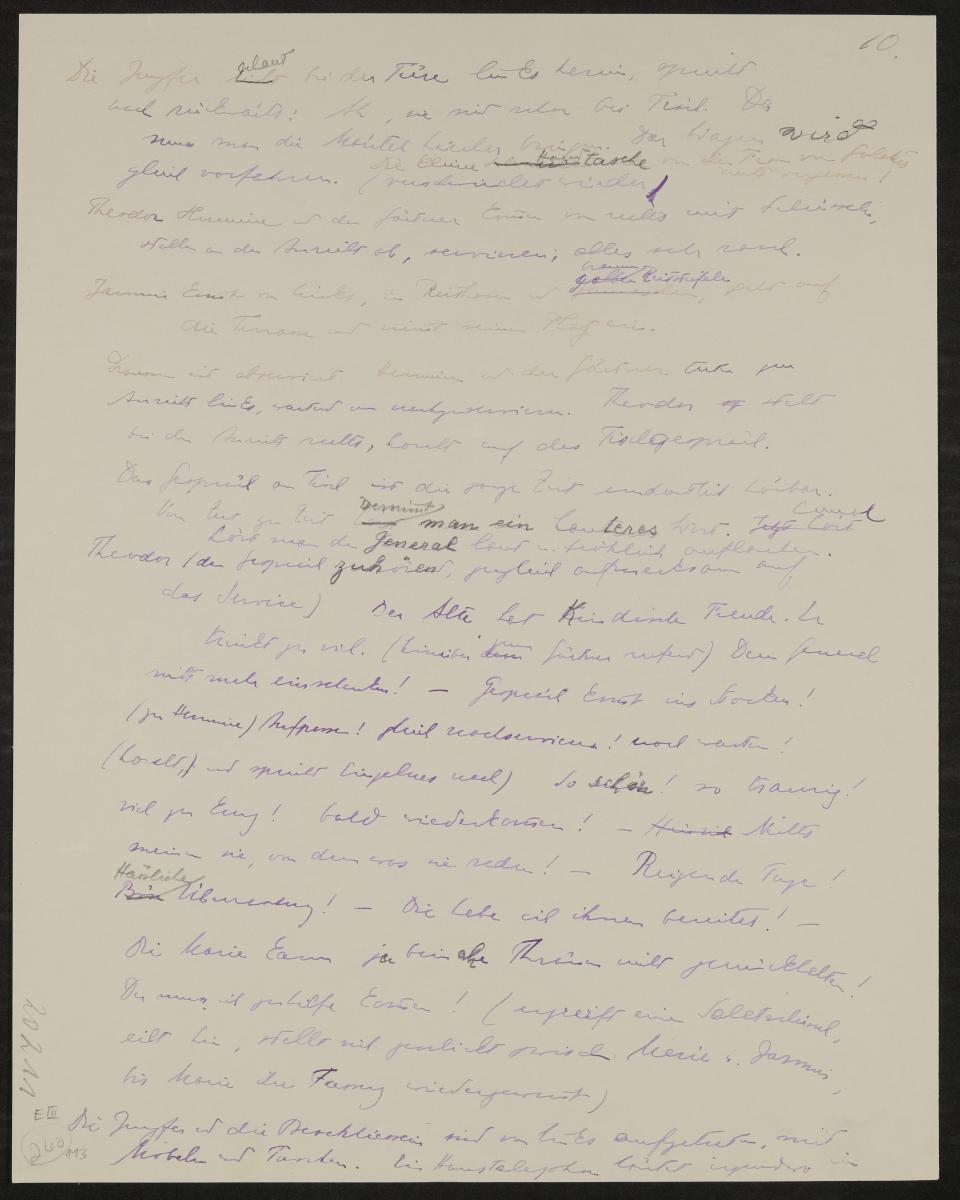 10.
Die Jungfer schaut bei der Türe links herein, spricht
nach rückwärts: Ah, sie sind schon bei Tisch. Da
muss man die Mäntel herüber bringen. Der Wagen wird
gleich vorfahren. (verschwindet wieder)
Die kleine Handtasche von der Frau von
nicht vergessen!
Theodor Hermine und der Gärtner kommen von rechts mit Schüsseln,
stellen an der Anricht ab, servieren; alles sehr rasch.
Jaromir kommt von links, in Reithosen und braunen Reitstiefeln, geht auf
die Terrasse und nimmt seinen Platz ein.
Draussen wird abserviert. Hermine und der Gärtner treten zur
Anricht links, wartend um nachzuservieren. Theodor steht
bei der Anricht rechts, horcht auf das Tischgespräch.
Das Gespräch am Tisch ist die ganze Zeit undeutlich hörbar.
Von Zeit zu Zeit vernimmt man ein lauteres Wort. Einmal
hört man den General laut u. fröhlich auflachen.
Theodor (dem Gespräch zuhörend, zugleich aufmerksam auf
das Service) Der Alte hat kindische Freude. Er
trinkt zu viel. (hinüber zum Gärtner rufend) Dem General
nicht mehr einschenken! — Gespräch kommt ins Stocken!
(zu Hermine) Aufpassen! gleich nachservieren! noch warten!
(horcht, und spricht Einzelnes nach) So schön! so traurig!
viel zu kurz! bald wiederkommen! — Nichts
meinen sie, von dem was sie reden! — Reizende Tage!
Hässliche Überraschung! — Die habe ich ihnen bereitet! —
Die Marie kann ja beinahe Thränen nicht zurückhalten!
Da muss ich zuhilfe kommen! (ergreift eine Salatschüssel,
eilt hin, stellt sich geschickt zwischen Marie u. Jaromir,
bis Marie ihre Fassung wiedergewinnt)
Die Jungfer und die Beschliesserin sind von links aufgetreten, mit
Mänteln und Taschen. Ein Haustelephon läutet irgendwo im
E III
240
113